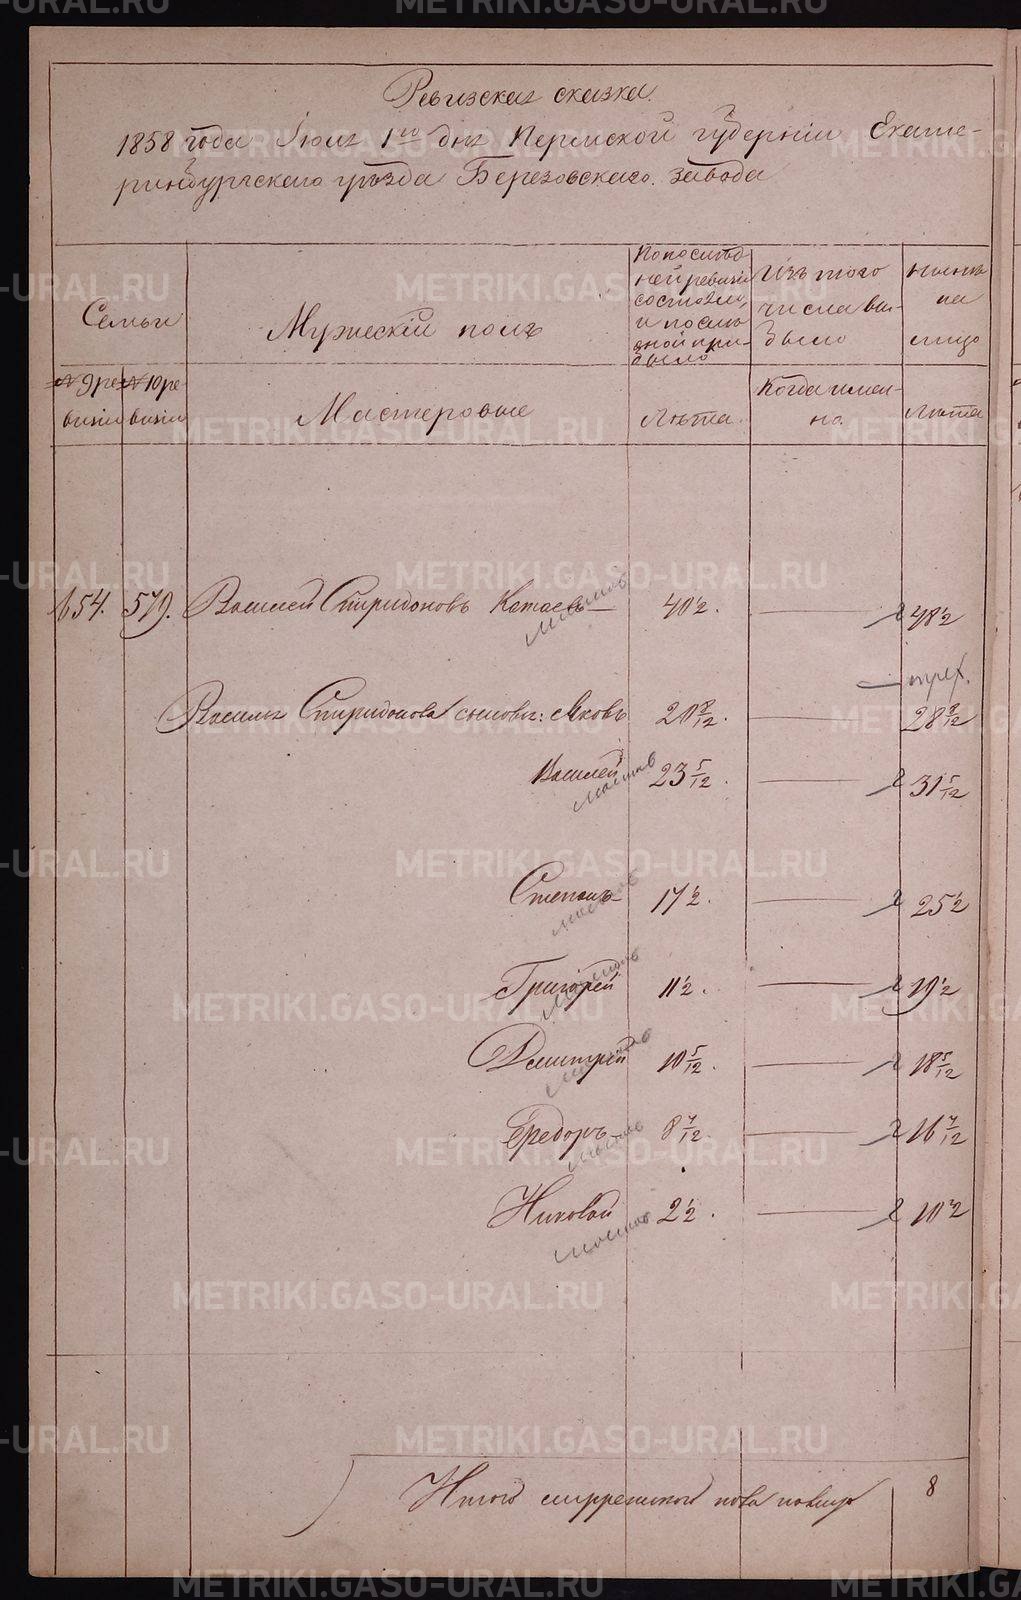 Ревизская сказка.
1858 года Іюня 1го дня Пермской губерніи Екате-
ринбургскаго уѣзда Березовскаго завода
Семьи
Мужескій полъ
По послѣд
ней ревизіи
состояло,
и послѣ
оной при-
было
Изъ того
числа вы-
было
нынѣ
на
лицо
№ 9 ре-
визіи
№ 10 ре-
визіи
Мастеровые
Лѣта.
Когда имен-
но.
Лѣта
654. 579. Василей Спиридоновъ Катаевъ 40½. 48½
Василья Спиридонова сыновья: Яковъ 20 8/12. 28 8/12
Василей 23 5/12. 31 5/12
Степанъ 17½. 25½
Григорей 11½. 19½
Дмитрей 10 5/12. 18 5/12
Ѳедоръ 8 7/12. 16 7/12
Николай 2½. 10½
Итого мужескаго пола налицо 8
METRIKI.GASO-URAL.RU